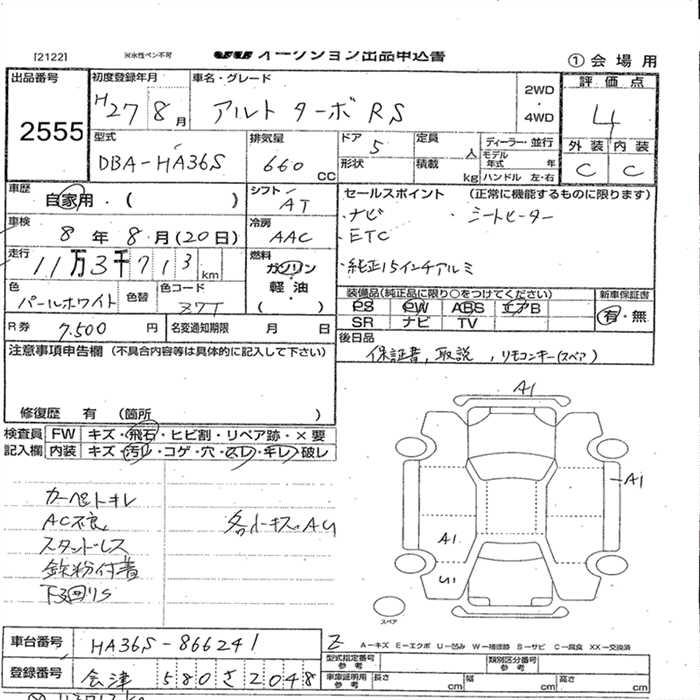 [2122]
※水性ペン不可
オークション出品申込書
① 会場用
出品番号
2555
初度登録年月
H27 8月
車名・グレード
アルト ターボRS
2WD
・
4WD
評価点
4
外装 内装
C C
型式
DBA-HA36S
排気量
660 CC
ドア 5
形状
定員 人
積載 kg
ディーラー・並行
モデル年式 年
ハンドル 左・右
車歴
自家用・( )
シフト
AT
セールスポイント (正常に機能するものに限ります)
・ナビ ・シートヒーター
・ETC
・純正15インチアルミ
車検
8年8月(20日)
冷房
AAC
走行
11万3千713 km
燃料
ガソリン
軽・油
( )
色
パールホワイト
色替
色コード
Z7T
装備品(純正品に限り○をつけてください)
PS PW ABS エアB
SR ナビ TV
新車保証書
有・無
R券
7,500 円
名変通知期限 月 日
後日品
保証書, 取説, リモコンキー(スペア)
注意事項申告欄 (不具合内容等は具体的に記入して下さい)
修復歴 有 (箇所 )
検査員記入欄
FW キズ・飛石・ヒビ割・リペア跡・×要
内装 キズ・汚れ・コゲ・穴・スレ・キレ・破レ
カーペットキレ
AC不良
スタッドレス
鉄粉付着
下廻りS
各小キズ.AU
A1
A1
A1
U1
スペア
車台番号
HA36S-866241
登録番号
会津 580 さ 2048
A−キズ E−エクボ U−凹み W−補修跡 S−サビ C−腐食 XX−交換済
型式指定番号 参考
類別区分番号 参考
車庫証明用 参考
長さ cm
幅 cm
高さ cm